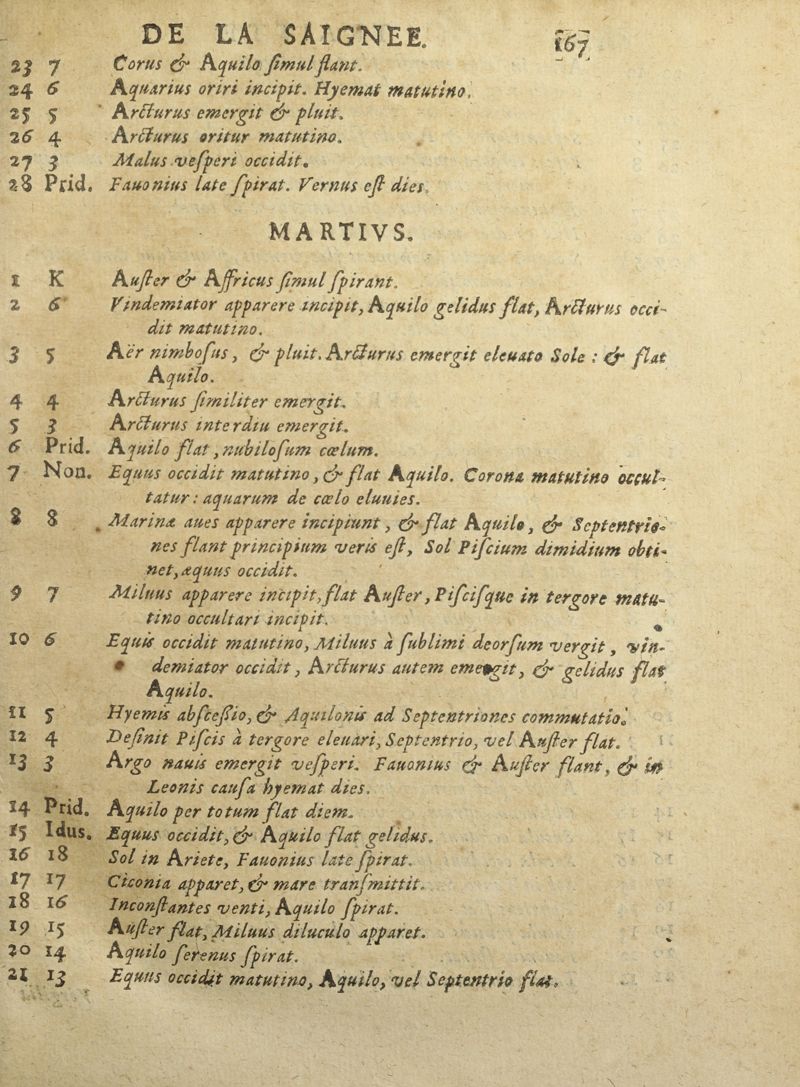 DE LA SAIGNEE. 167
23 7 Corus & Aquilo ſimul flant.
24 6 Aquarius oriri incipit. Hyemat matutino.
25 5 Arcturus emergit & pluit.
26 4 Arcturus oritur matutino.
27 3 Malus veſperi occidit.
28 Prid. Fauonius late ſpirat. Vernus eſt dies.
MARTIVS.
1 K Auſter & Affricus ſimul ſpirant.
2 6 Vindemiator apparere incipit, Aquilo gelidus flat, Arcturus occi-
dit matutino.
3 5 Aër nimboſus, & pluit. Arcturus emergit eleuato Sole : & flat
Aquilo.
4 4 Arcturus ſimiliter emergit.
5 3 Arcturus interdiu emergit.
6 Prid. Aquilo flat, nubiloſum cœlum.
7 Non. Equus occidit matutino, & flat Aquilo. Corona matutino occul-
tatur : aquarum de cœlo eluuies.
8 8 Marinæ aues apparere incipiunt, & flat Aquilo, & Septentrio-
nes flant principium veris eſt, Sol Piſcium dimidium obti-
net, æquus occidit.
9 7 Miluus apparere incipit, flat Auſter, Piſciſque in tergore matu-
tino occultari incipit.
10 6 Equis occidit matutino, Miluus à ſublimi deorſum vergit, vin-
demiator occidit, Arcturus autem emergit, & gelidus flat
Aquilo.
11 5 Hyemis abſceſſio, & Aquilonis ad Septentriones commutatio.
12 4 Deſinit Piſcis à tergore eleuari, Septentrio, vel Auſter flat.
13 3 Argo nauis emergit veſperi. Fauonius & Auſter flant, & in
Leonis cauſa hyemat dies.
14 Prid. Aquilo per totum flat diem.
15 Idus. Equus occidit, & Aquilo flat gelidus.
16 18 Sol in Ariete, Fauonius late ſpirat.
17 17 Ciconia apparet, & mare tranſmittit.
18 16 Inconſtantes venti, Aquilo ſpirat.
19 15 Auſter flat, Miluus diluculo apparet.
20 14 Aquilo ſerenus ſpirat.
21 13 Equus occidit matutino, Aquilo, vel Septentrio flat.